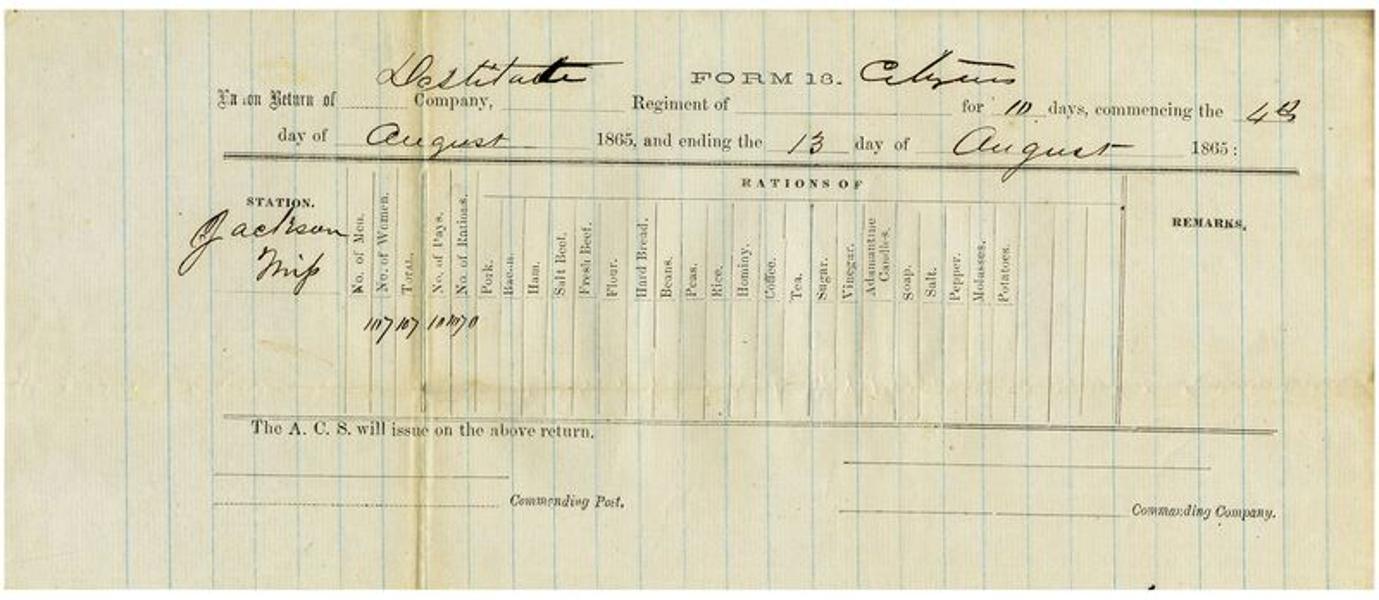 Destitute FORM 13. Citizens
Ration Return of Company, Regiment of for 10 days, commencing the 4th
day of August 1865, and ending the 13 day of August 1865:
RATIONS OF
STATION. No. of Men. No. of Women. TOTAL. No. of Days. No. of Rations. Pork. Bacon. Ham. Salt Beef. Fresh Beef. Flour. Hard Bread. Beans. Peas. Rice. Hominy. Coffee. Tea. Sugar. Vinegar. Adamantine Candles. Soap. Salt. Pepper. Molasses. Potatoes. REMARKS.
Jackson
Miss
107 107 10 1070
The A. C. S. will issue on the above return.
Commanding Post.
Commanding Company.